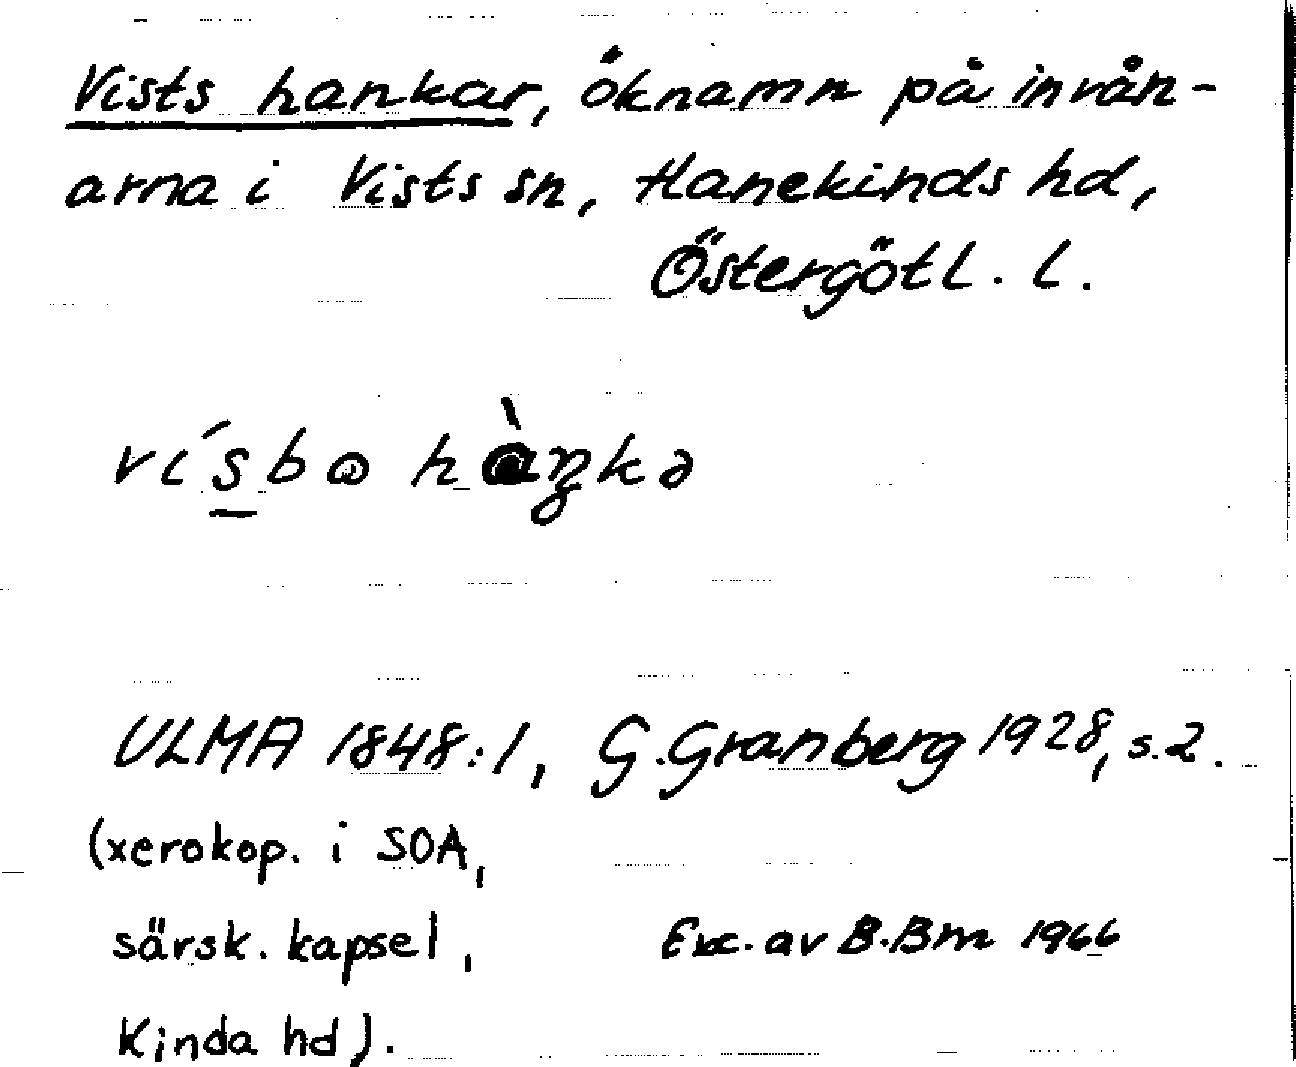 Vists hankar, öknamn på invån-
arna i Vists sn, Hanekinds hd,
Östergötl. l.
ULMA 1848:1, G. Granberg 1928, s. 2.
(xerokop. i SOA,
särsk. kapsel,
Exc. av B. Bm 1966
Kinda hd).